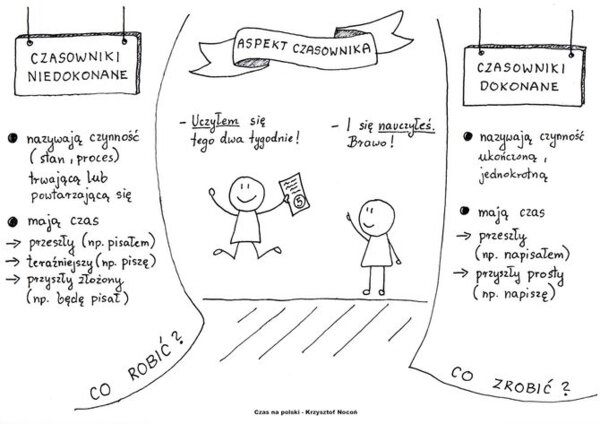 ASPEKT CZASOWNIKA
CZASOWNIKI
NIEDOKONANE
● nazywają czynność
(stan, proces)
trwającą lub
powtarzającą się
● mają czas
→ przeszły (np. pisałem)
→ teraźniejszy (np. piszę)
→ przyszły złożony
(np. będę pisał)
CO ROBIĆ?
- Uczyłem się
tego dwa tygodnie!
5
- I się nauczyłeś.
Brawo!
CZASOWNIKI
DOKONANE
● nazywają czynność
ukończoną,
jednokrotną
● mają czas
→ przeszły
(np. napisałem)
→ przyszły prosty
(np. napiszę)
CO ZROBIĆ?
Czas na polski - Krzysztof Nocoń